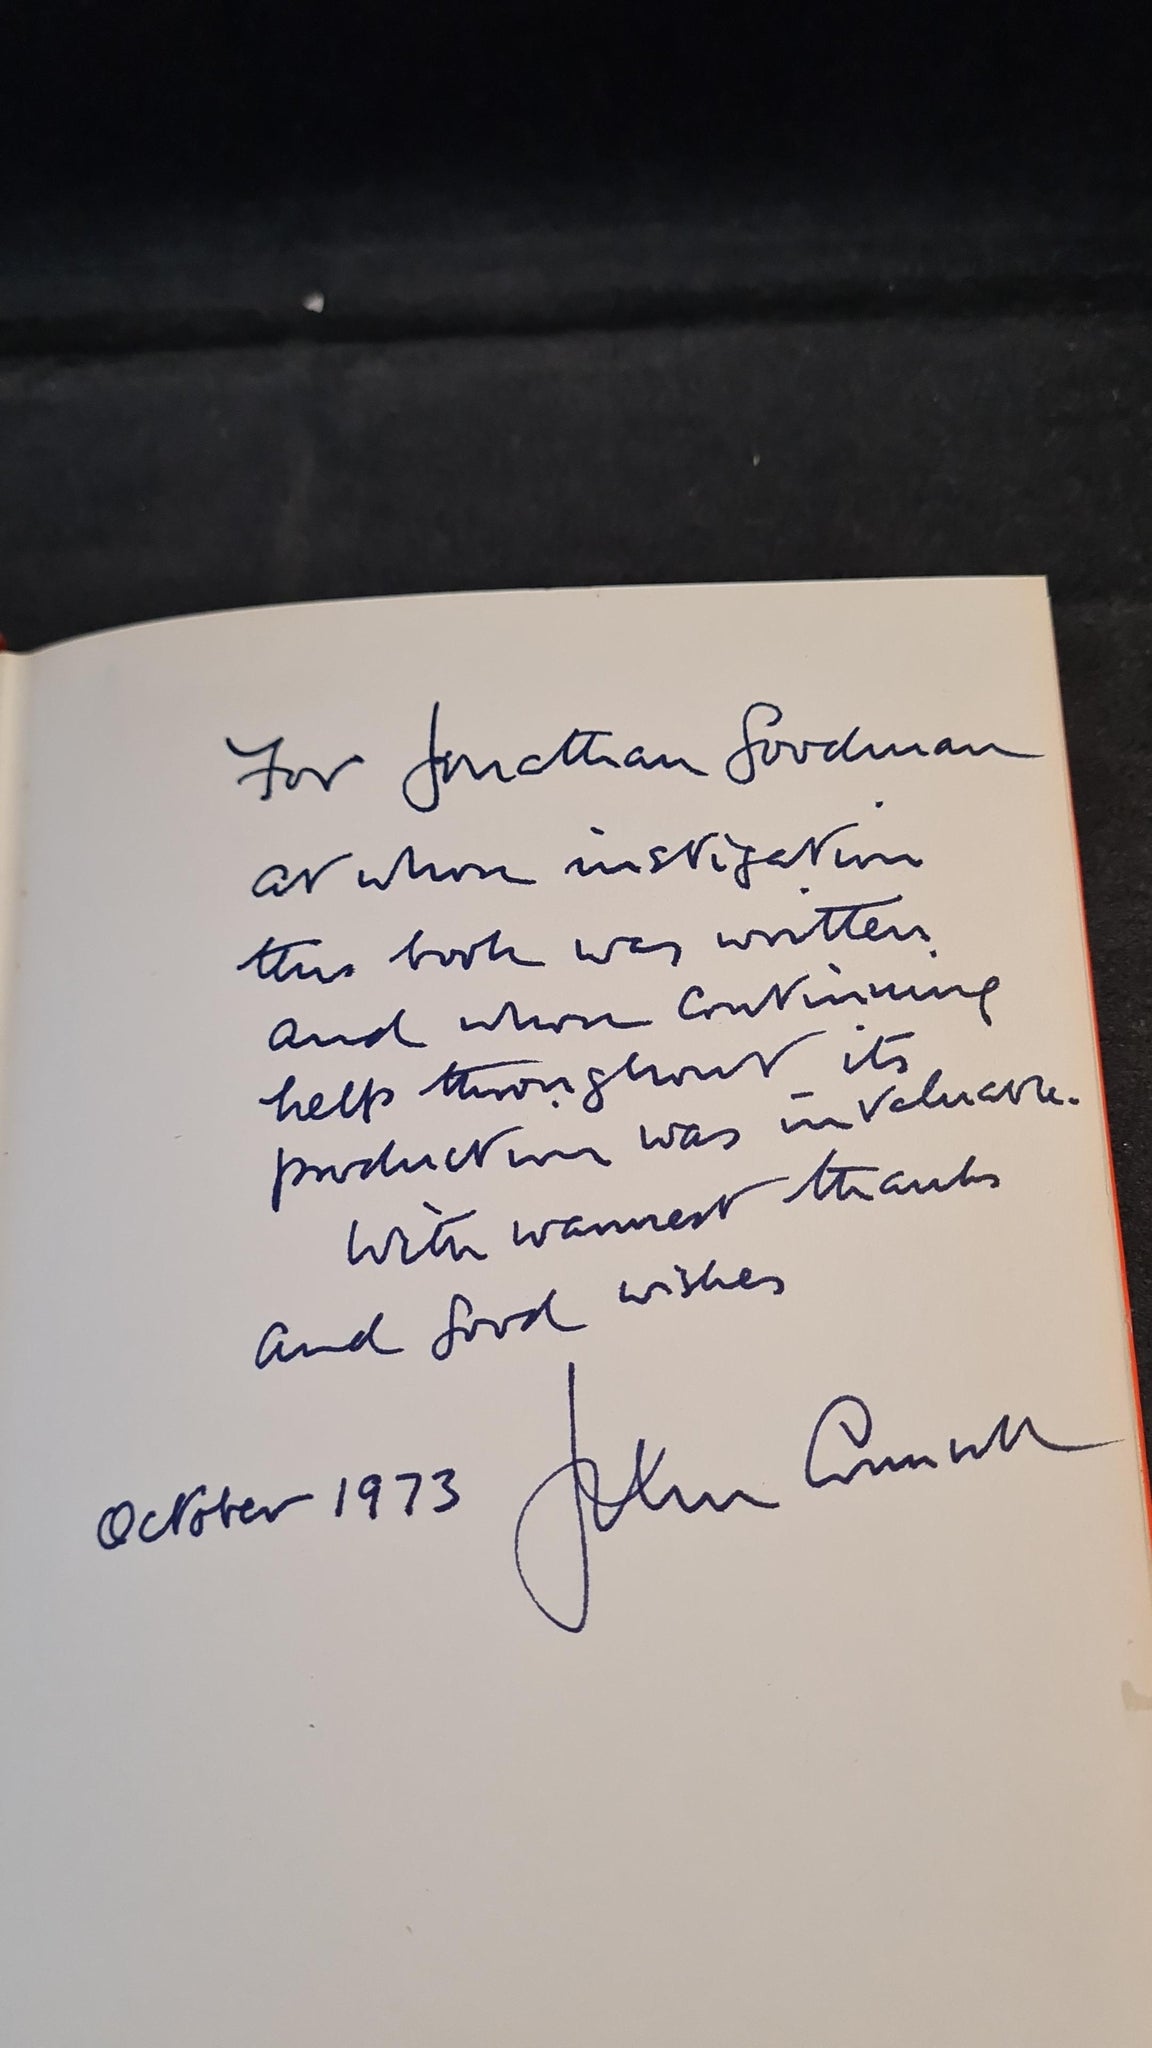 For Jonathan Goodman
at whose instigation
this book was written
and whose continuing
help throughout its
production was invaluable.
With warmest thanks
and good wishes
October 1973 John